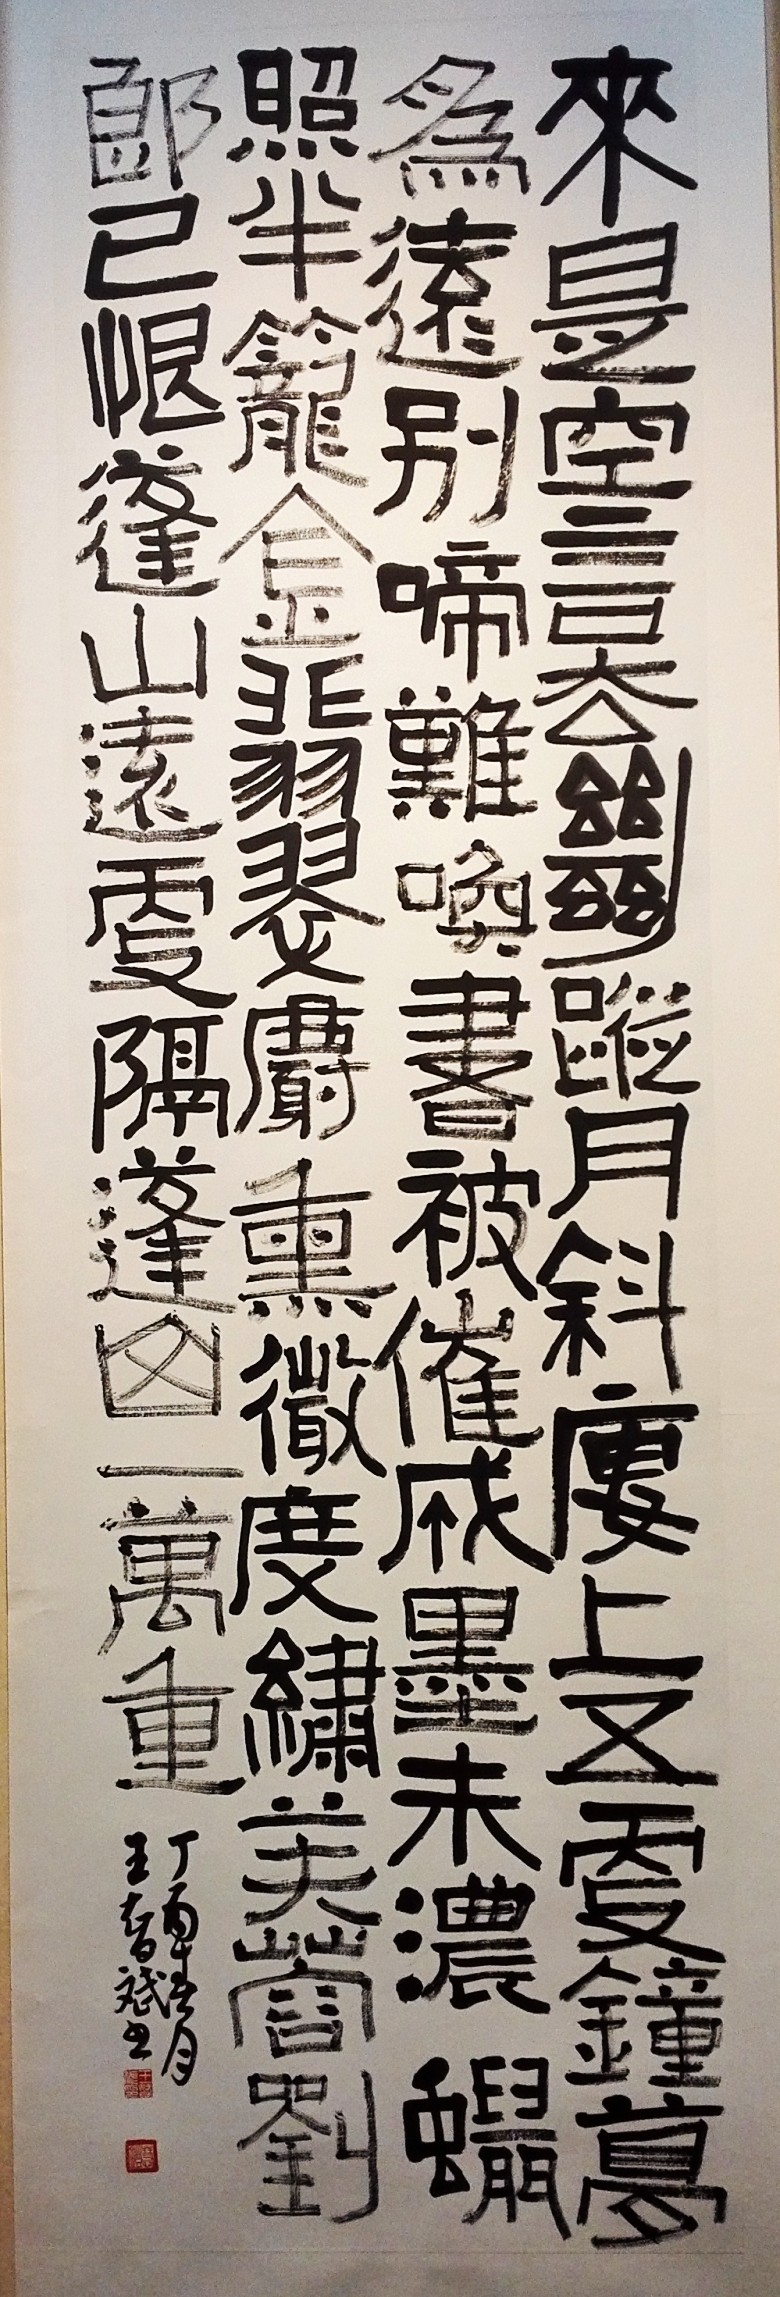 來是空言去絕蹤月斜樓上五更鐘夢
為遠別啼難喚書被催成墨未濃蠟
照半籠金翡翠麝熏微度繡芙蓉劉
郎已恨蓬山遠更隔蓬山一萬重
丁酉月
王智斌書